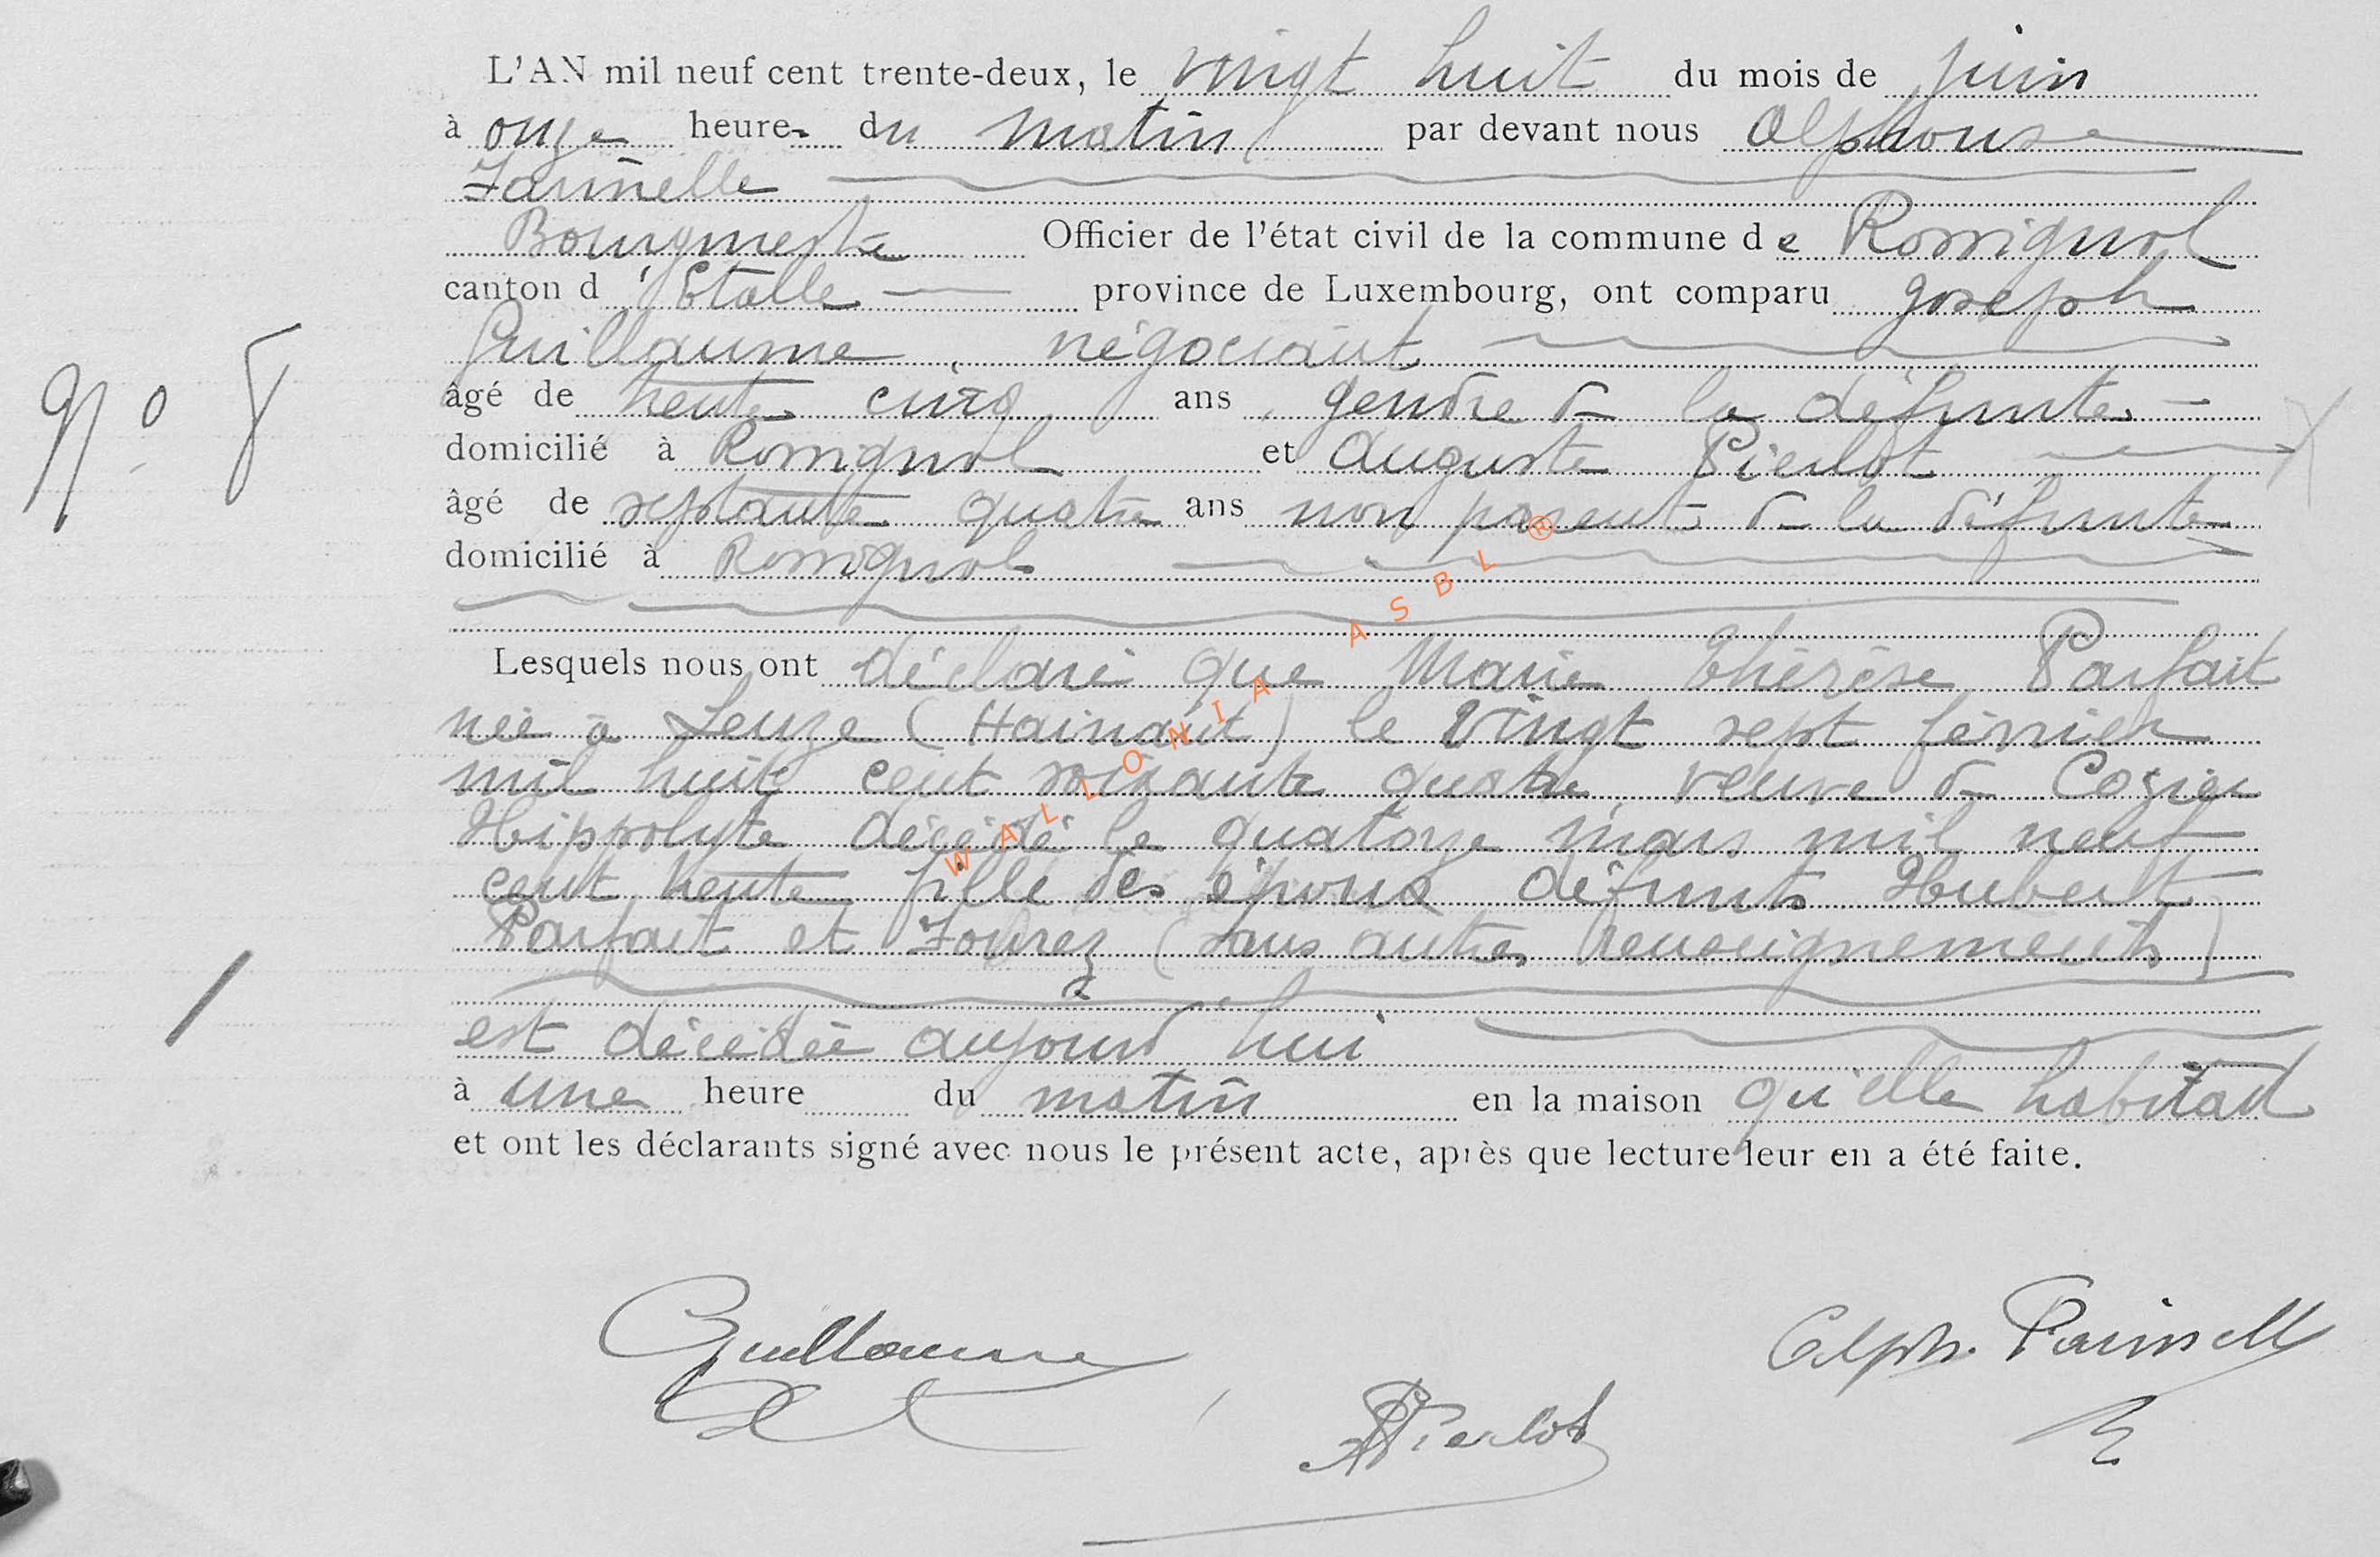 L'AN mil neuf cent trente-deux, le vingt huit du mois de juin
à onze heures du matin par devant nous Alphonse
Bourgmestre Officier de l'état civil de la commune de Rossignol
canton d'Etalle province de Luxembourg, ont comparu Joseph
Guillaume, négociant
âgé de trente cinq ans, gendre de la défunte
N° 8
domicilié à Rossignol et Auguste Pierlot
âgé de septante quatre ans non parent de la défunte
domicilié à Rossignol
Lesquels nous ont déclaré que Marie Thérèse Parfait
née à Leuze (Hainaut) le vingt sept février
mil huit cent soixante quatre, veuve de Cozier
Hippolyte décédé le quatorze mars mil neuf
cent trente fille des époux défunts Hubert
Parfait et Jourez (sans autres renseignements)
est décédée aujourd'hui
à une heure du matin en la maison qu'elle habitait
et ont les déclarants signé avec nous le présent acte, après que lecture leur en a été faite.
Guillaume
Alph.
A Pierlot
WALLONIA ASBL ®